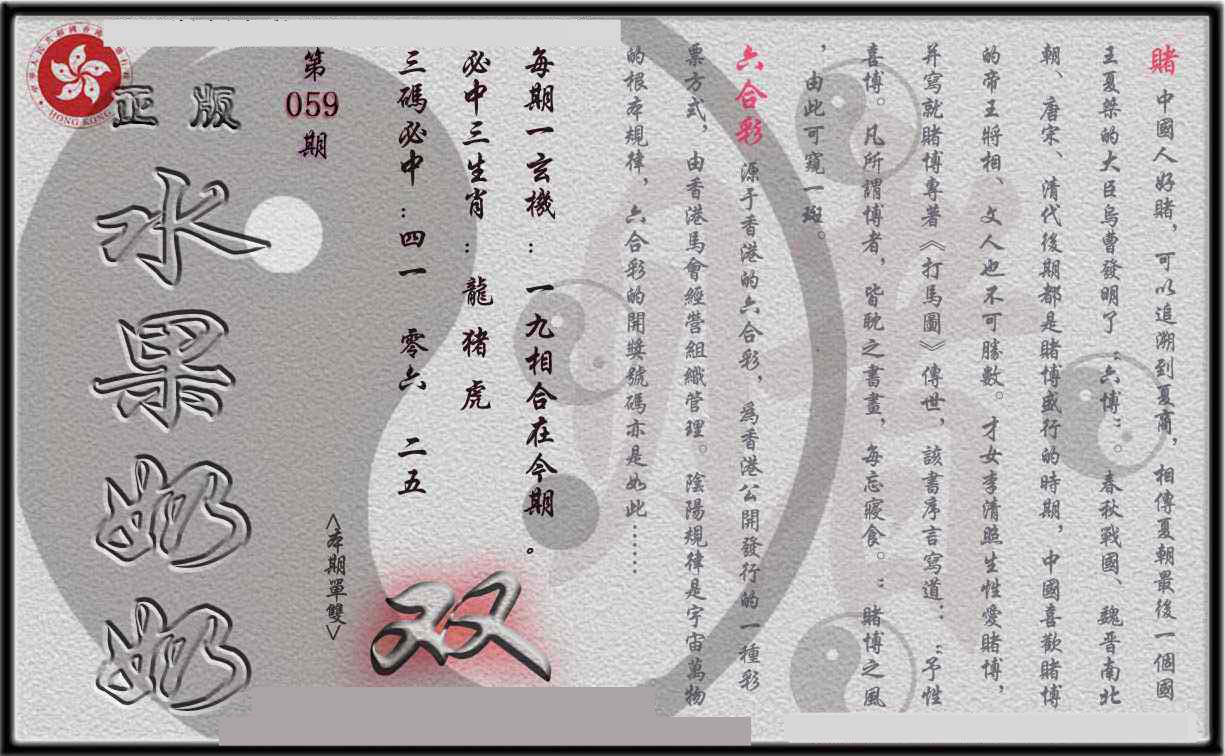 賭 中國人好賭，可以追溯到夏商，相傳夏朝最後一個國
王夏桀的大臣烏曹發明了“六博”。春秋戰國、魏晋南北
朝、唐宋、清代後期都是賭博盛行的時期，中國喜歡賭博
的帝王將相、文人也不可勝數。才女李清照生性愛賭博，
并寫就賭博專著《打馬圖》傳世，該書序言寫道：“予性
喜博。凡所謂博者，皆耽之書畫，每忘寢食。”賭博之風
，由此可窺一斑。
六合彩 源于香港的六合彩，爲香港公開發行的一種彩
票方式，由香港馬會經營組織管理。陰陽規律是宇宙萬物
的根本規律，六合彩的開獎號碼亦是如此……
每期一玄機：一九相合在今期。
必中三生肖：龍 猪 虎
三碼必中：四一 零六 二五
<本期單雙>
双
第059期
正版
水果奶奶
HONG KONG